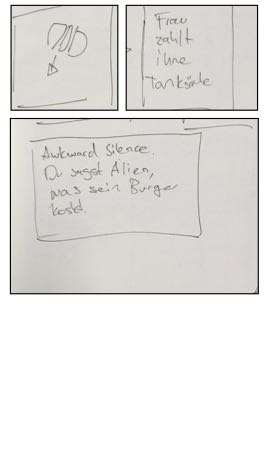 Frau
zahlt
ihre
Tankkarte
Awkward Silence.
Du sagst Alien,
was sein Burger
kostet.